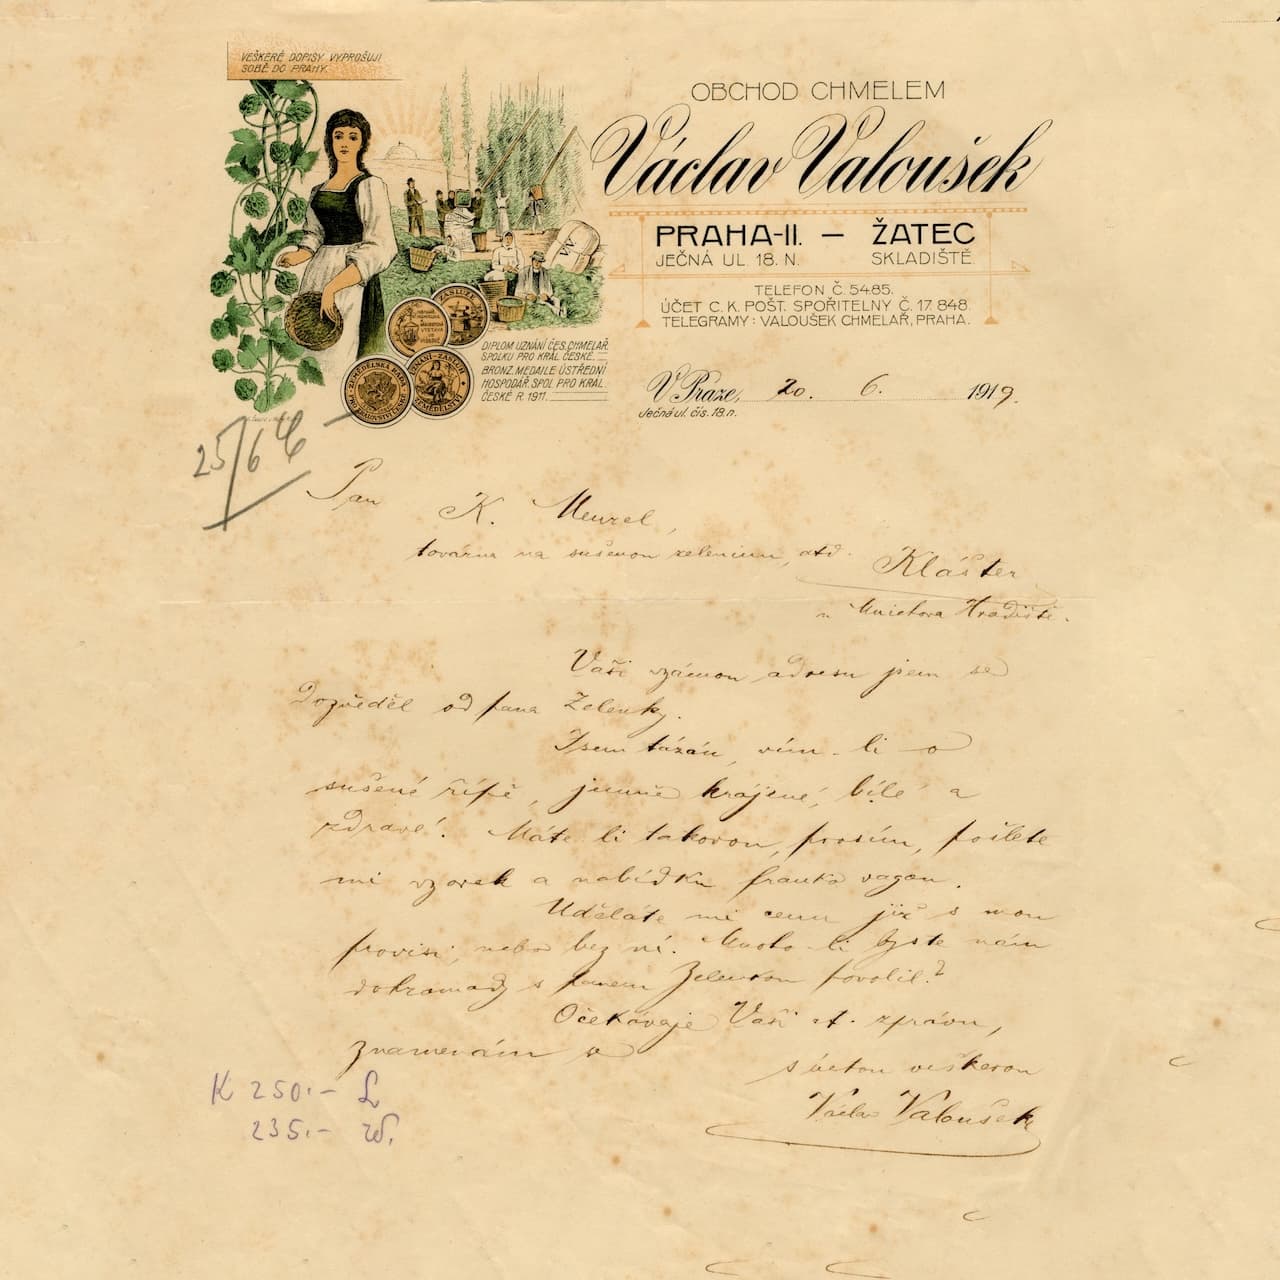 VEŠKERÉ DOPISY VYPROŠUJI
SOBĚ DO PRAHY.
OBCHOD CHMELEM
Václav Valoušek
PRAHA-II. — ŽATEC
JEČNÁ UL. 18. N. SKLADIŠTĚ.
TELEFON Č. 5485.
ÚČET C. K. POŠT. SPOŘITELNY Č. 17.848.
TELEGRAMY: VALOUŠEK CHMELAŘ, PRAHA.
V.V
DIPLOM UZNÁNÍ ČES. CHMELAŘ.
SPOLKU PRO KRÁL. ČESKÉ.
BRONZ. MEDAILE ÚSTŘEDNÍ
HOSPODÁŘ. SPOL. PRO KRÁL.
ČESKÉ R. 1911.
V Praze, 20. 6. 1919.
Ječná ul. čís. 18. n.
25/6
Pan
K. Menzel,
továrna na sušenou zeleninu, atd.
Klášter
u Mnichova Hradiště.
Vaši vzácnou adresu jsem se
dozvěděl od pana Zelenky.
Jsem tázán, vím-li o
sušené řípě, jemně krájené, bílé a
zdravé. Máte-li takovou, prosím, pošlete
mi vzorek a nabídku franko vagon.
Uděláte mi cenu již s mou
provisí, nebo bez ní. Mnoho-li byste nám
dohromady s panem Zelenkou povolil?
Očekávaje Vaší ct. zprávu,
znamenám se
s úctou veškerou
Václav Valoušek
K 250.-
235.-